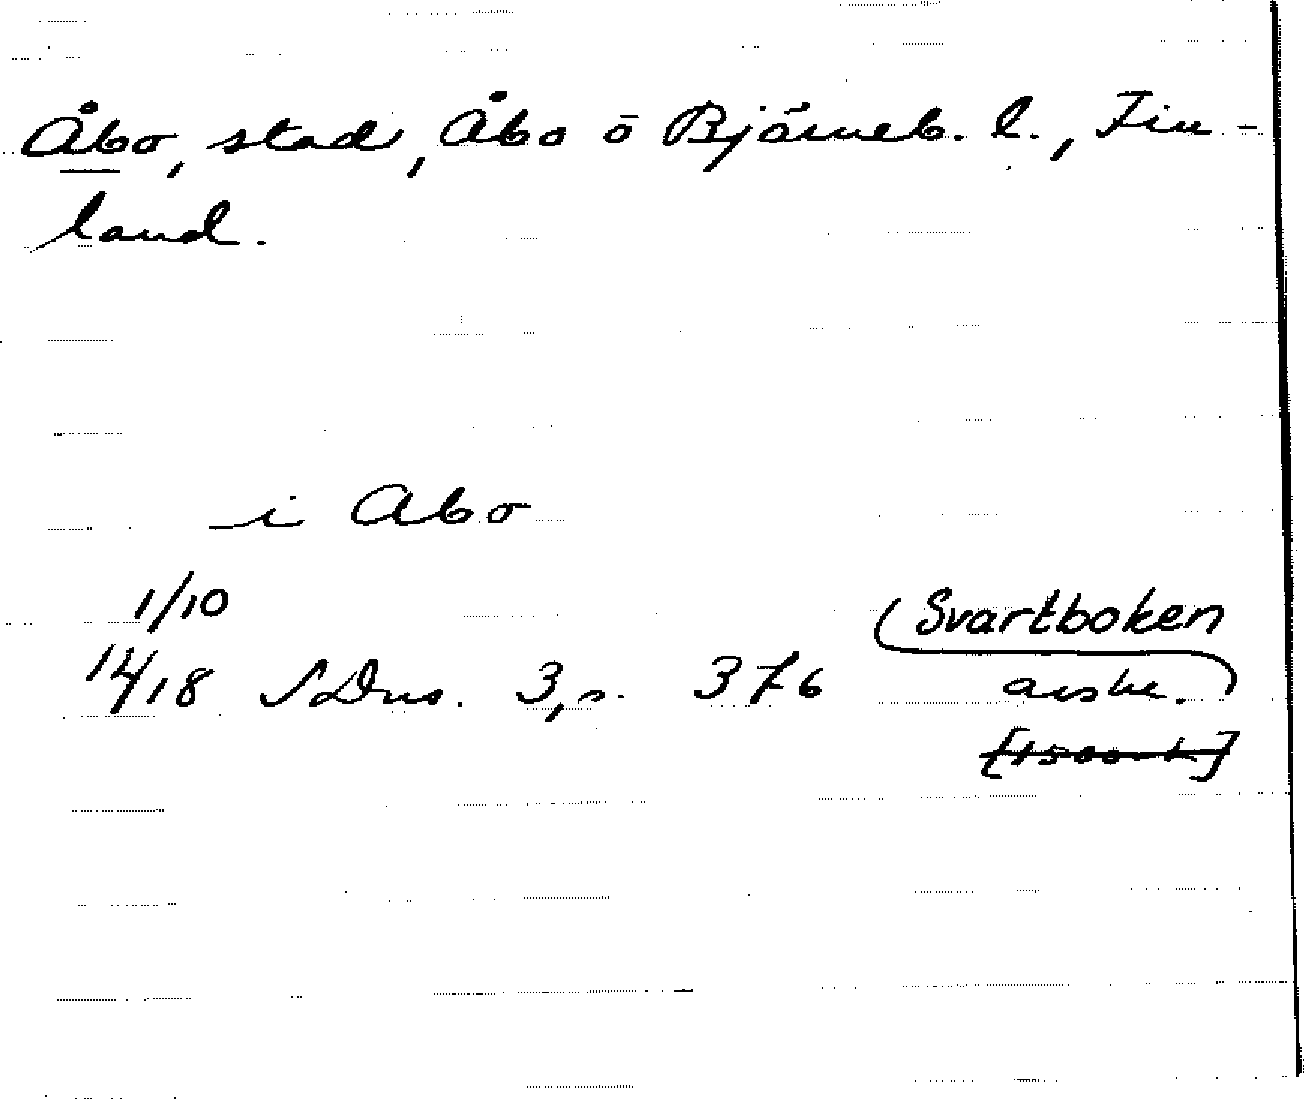 Åbo, stad, Åbo o Björneb. l., Fin-
land.
i Abo
1/10
14/18 SDns. 3, s. 376 (Svartboken
avskr.)
[1500-t]